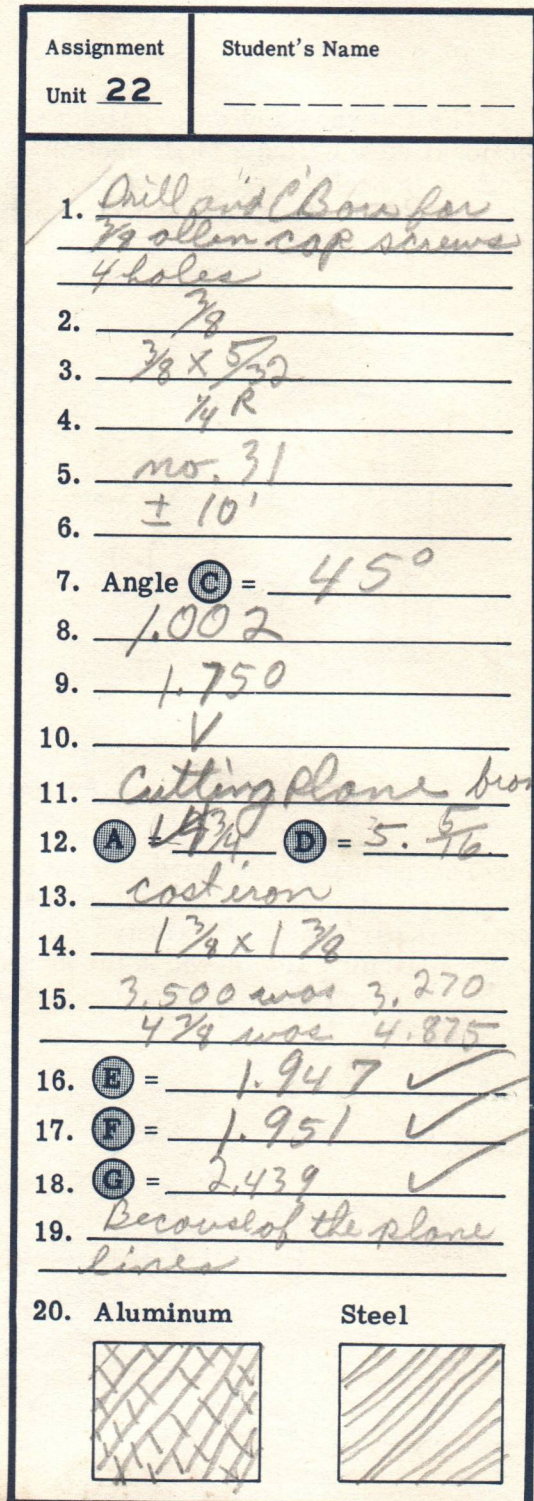 Assignment
Unit 22
Student's Name
1. Drill and C'Bore for
3/8 allen cap screws
4 holes
2. 3/8
3. 3/8 x 5/32
4. 1/4 R
5. no. 31
6. ± 10'
7. Angle C = 45°
8. 1.002
9. 1.750
10. V
11. Cutting plane
12. A = 3/4 D = 5/16
13. cast iron
14. 1 3/8 x 1 3/8
15. 3.500 was 3.270
4 7/8 was 4.875
16. E = 1.947 ✓
17. F = 1.951 ✓
18. G = 2.439 ✓
19. Because of the plane
lines
20. Aluminum Steel